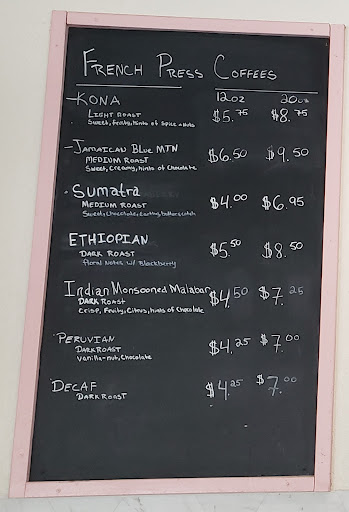 French Press Coffees
12oz 20oz
-Kona $5.75 $8.75
Light Roast
Sweet, fruity, hints of Spice + Nuts
-Jamaican Blue MTN $6.50 $9.50
Medium Roast
Sweet, Creamy, hints of Chocolate
·Sumatra $4.00 $6.95
Medium Roast
Sweet, Chocolate, Earthy, butterscotch
Ethiopian $5.50 $8.50
Dark Roast
floral Notes w/ Blackberry
Indian Monsooned Malabar $4.50 $7.25
Dark Roast
Crisp, Fruity, Citrus, hints of Chocolate
·Peruvian $4.25 $7.00
Dark Roast
Vanilla-nut, Chocolate
Decaf $4.25 $7.00
Dark Roast